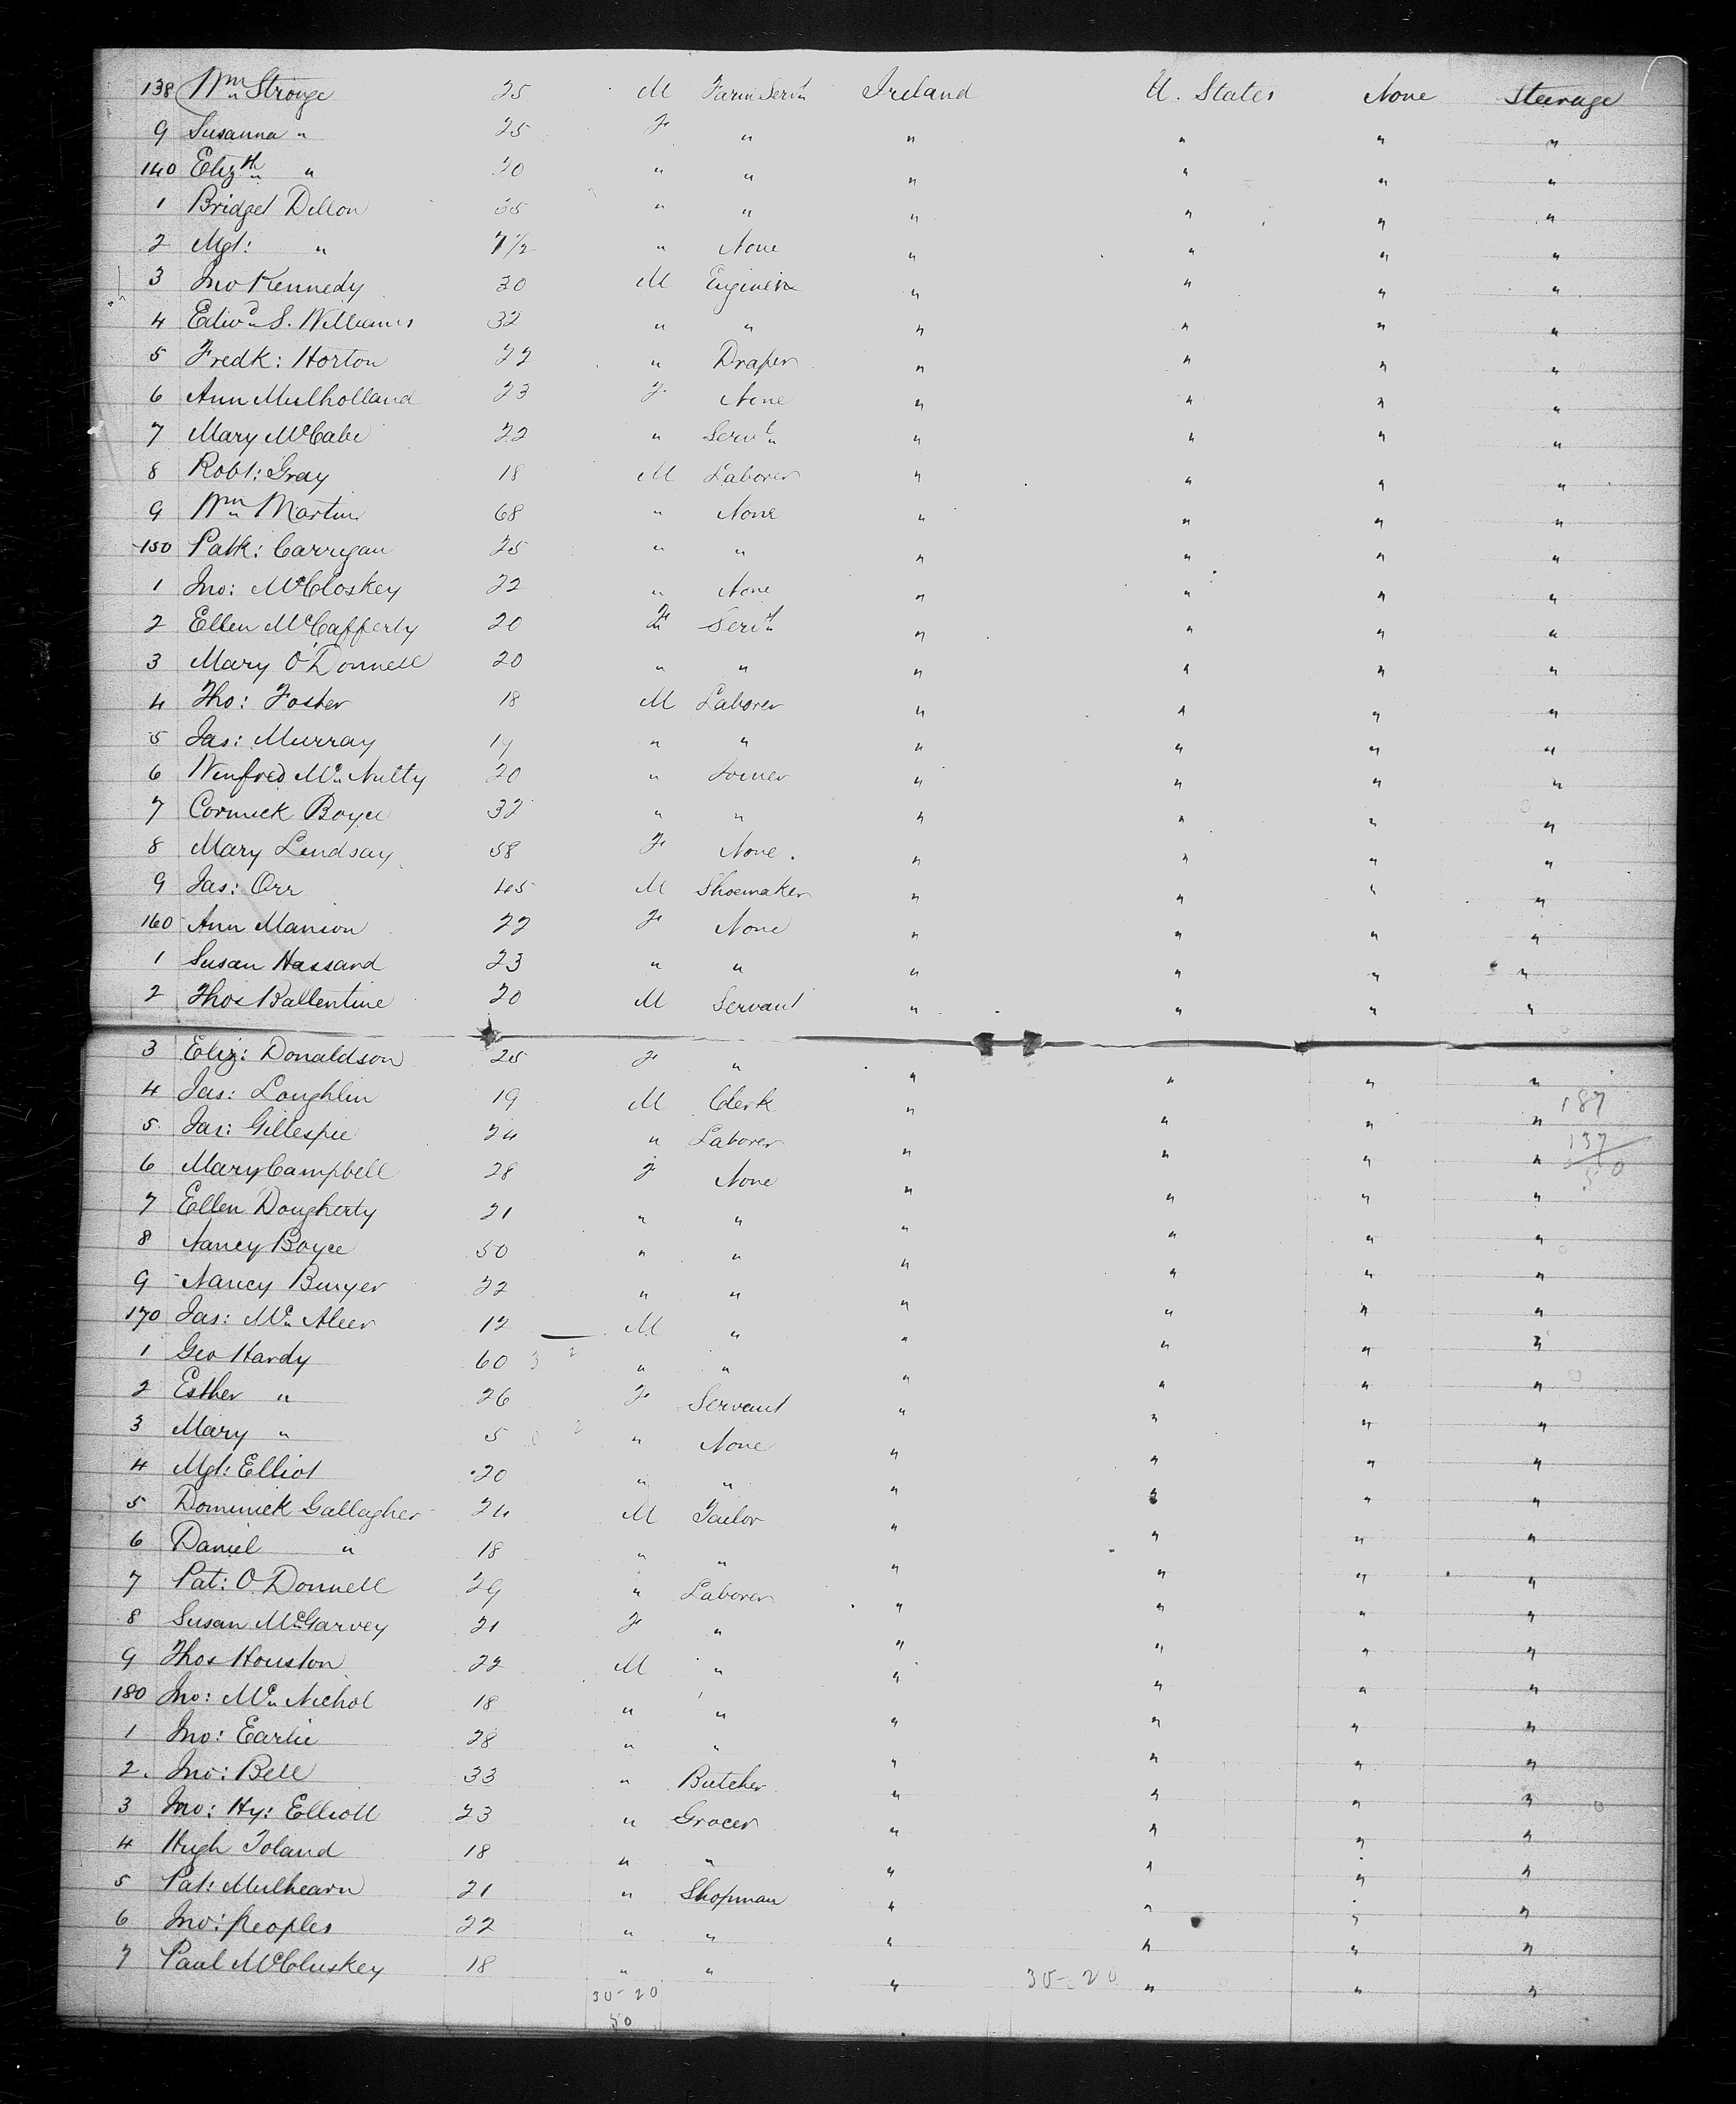 138 Wm Stronge 25 M Farm Servt Ireland U. States None Steerage
9 Susanna " 25 F " " " " "
140 Elizth " 20 " " " " " "
1 Bridget Dillon 35 " " " " " "
2 Mgt: " 7½ " None " " " "
3 Jno Kennedy 30 M Engineer " " " "
4 Edwd S. Williams 32 " " " " " "
5 Fredk: Horton 22 " Draper " " " "
6 Ann Mulholland 23 F None " " " "
7 Mary McCabe 22 " Servt " " " "
8 Robt: Gray 18 M Laborer " " " "
9 Wm Martin 68 " None " " " "
150 Patk: Carrigan 25 " " " " " "
1 Jno: McCloskey 22 " None " " " "
2 Ellen McCafferty 20 F Servt " " " "
3 Mary O'Donnell 20 " " " " " "
4 Tho: Foster 18 M Laborer " " " "
5 Jas: Murray 19 " " " " " "
6 Winfred Mc Nulty 20 " Joiner " " " "
7 Cormick Boyce 32 " " " " " "
8 Mary Lindsay 58 F None . " " " "
9 Jas: Orr 45 M Shoemaker " " " "
160 Ann Manion 22 F None " " " "
1 Susan Hassard 23 " " " " " "
2 Thos Ballentine 20 M Servant " " " "
3 Eliz: Donaldson 25 F " " " " "
4 Jas: Loughlin 19 M Clerk " " " " 187
5 Jas: Gillespie 24 " Laborer " " " " 137
6 Mary Campbell 28 F None " " " " 50
7 Ellen Dougherty 21 " " " " " "
8 Nancy Boyce 50 " " " " " "
9 Nancy Bunyer 22 " " " " " "
170 Jas: Mc Aleer 12 M " " " " "
1 Geo Hardy 60 " " " " " "
2 Esther " 26 F Servant " " " "
3 Mary " 5 " None " " " "
4 Mgt: Elliot 20 " " " " " "
5 Dominick Gallagher 24 M Tailor " " " "
6 Daniel " 18 " " " " " "
7 Pat: O'Donnell 29 " Laborer " " " "
8 Susan McGarvey 21 F " " " " "
9 Thos Houston 22 M " " " " "
180 Jno: Mc Nichol 18 " " " " " "
1 Jno: Earlie 28 " " " " " "
2. Jno: Bell 33 " Butcher " " " "
3 Jno: Hy: Elliott 23 " Grocer " " " "
4 Hugh Toland 18 " " " " " "
5 Pat: Mulhearn 21 " Shopman " " " "
6 Jno: Peoples 22 " " " " " "
7 Paul McCluskey 18 " " " 30-20 " " "
30-20
50